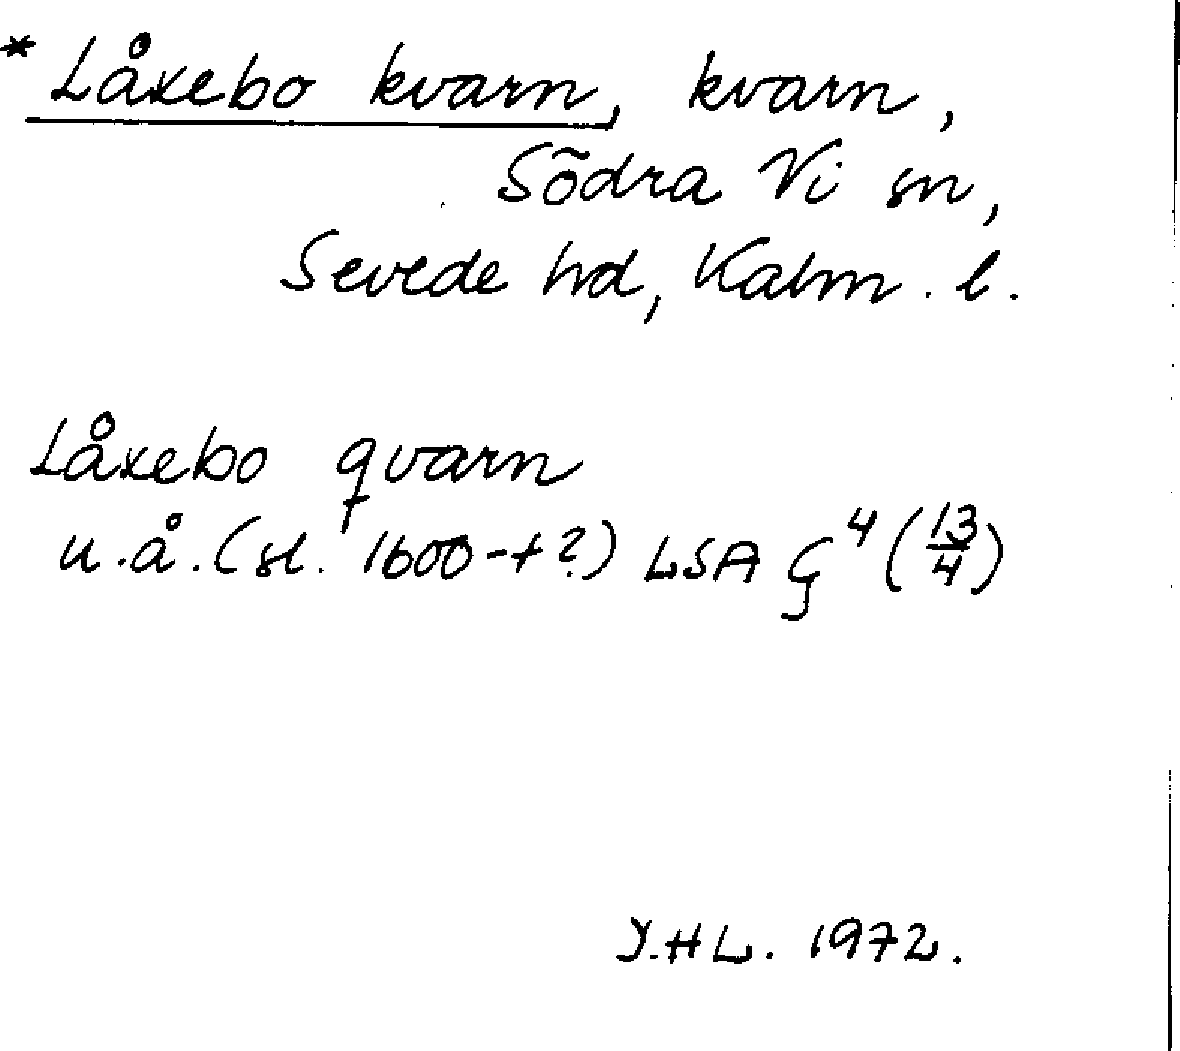 * Låxebo kvarn, kvarn,
Södra Vi sn,
Sevede hd, Kalm. l.
Låxebo qvarn
u.å. (sl. 1600-t?) LSA Ç⁴ (13/4)
Y.HL. 1972.